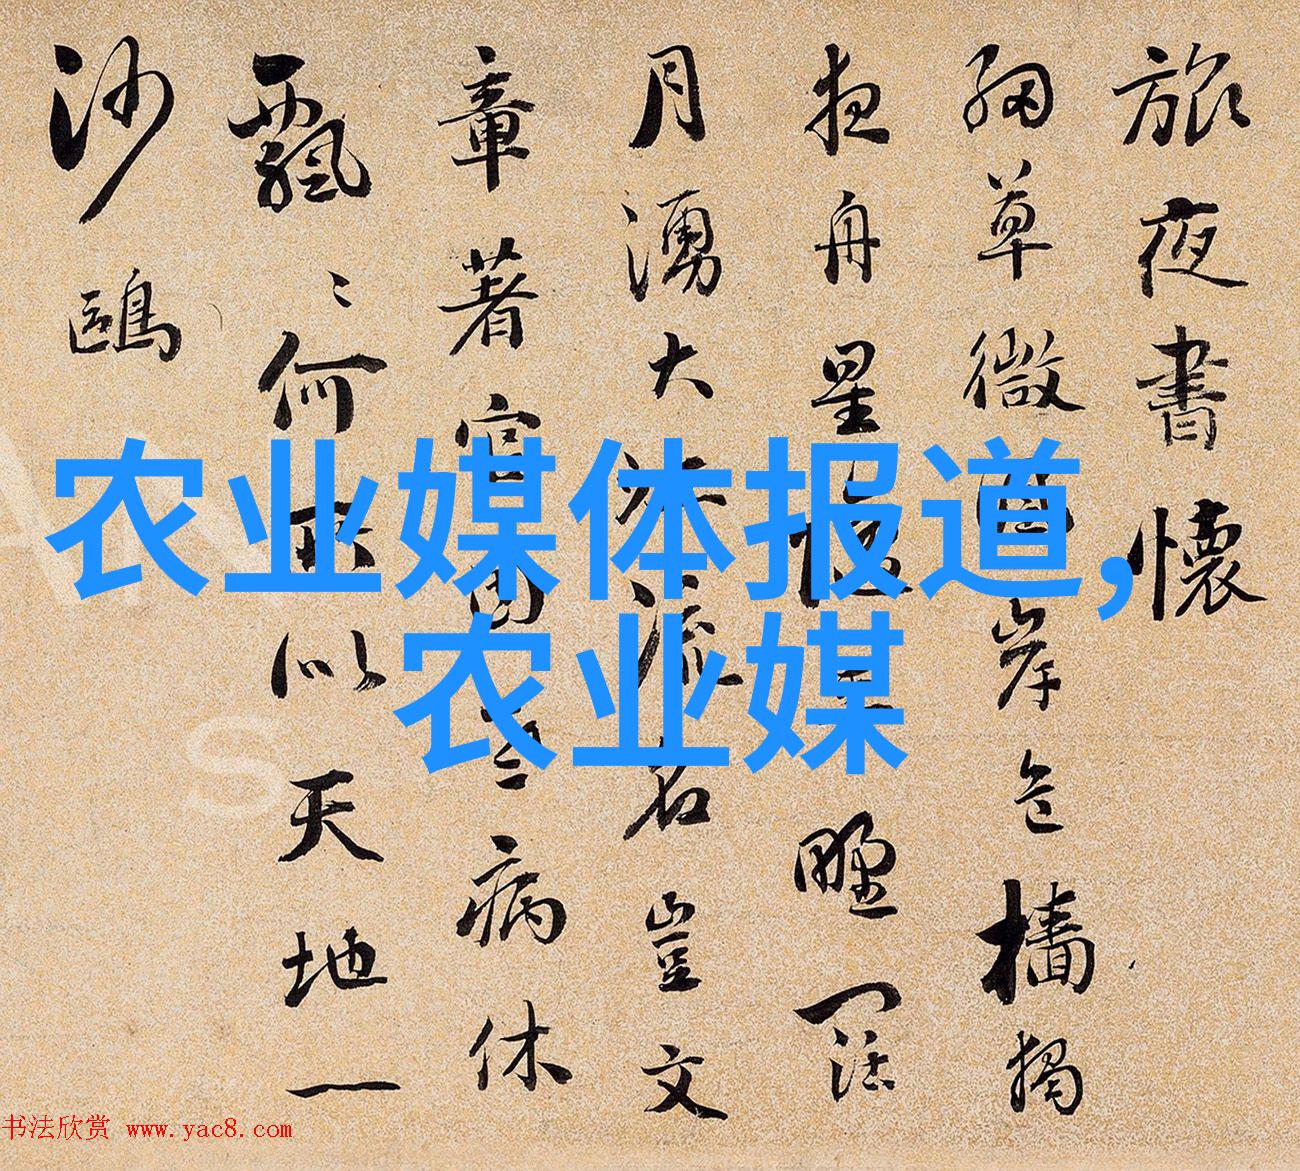 旅夜書懷
細草微風岸危檣獨
夜舟星垂野闊
月湧大江流名豈文
章著官因病休
飄〻何所似天地一
沙鷗
农业媒体报道,
农业媒
书法欣赏 www.yac8.com